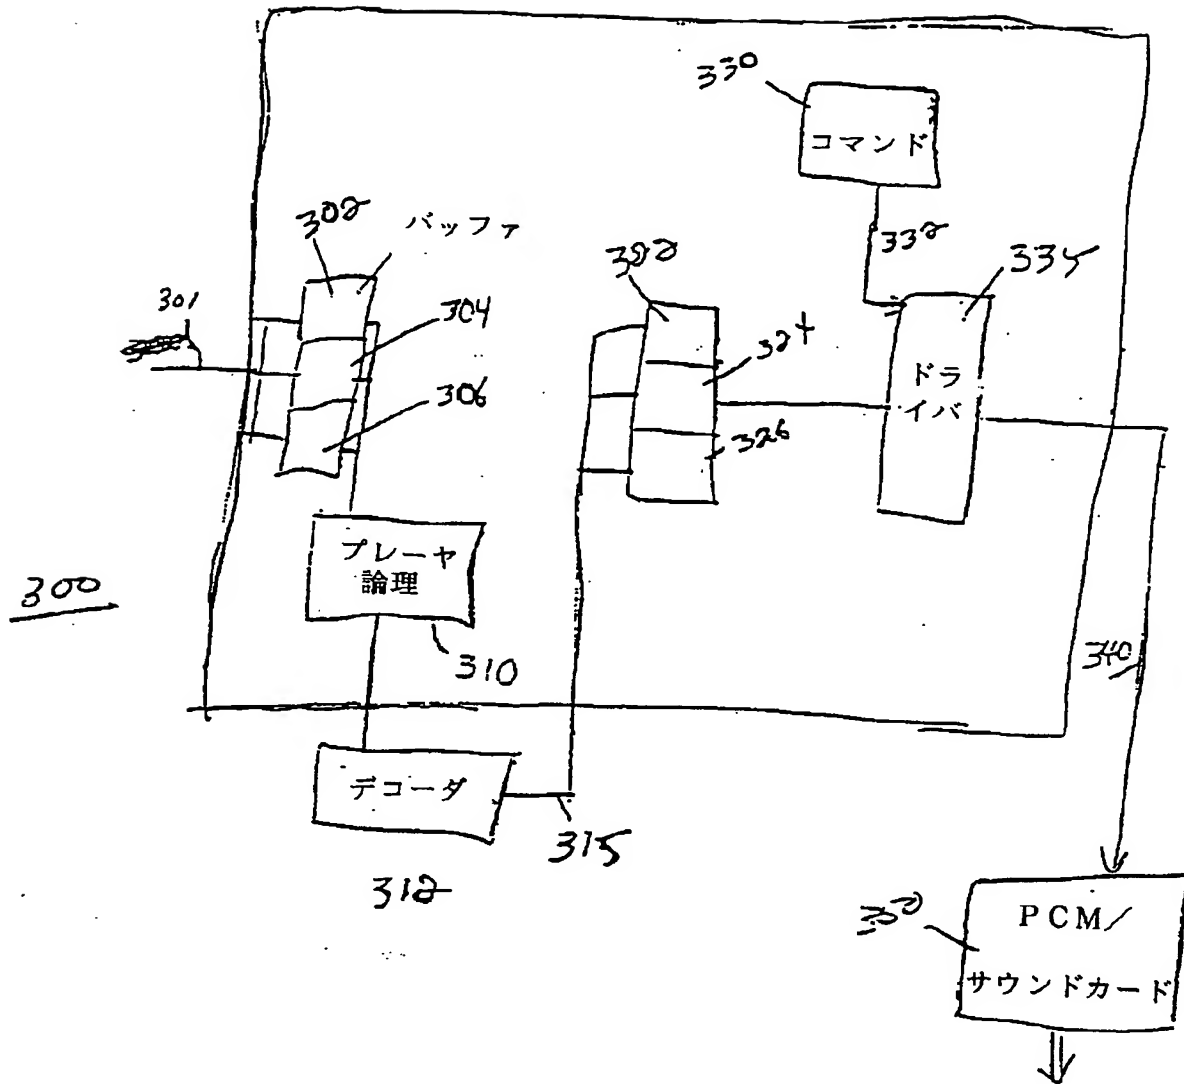 330
コマンド
332
302
バッファ
301
304
306
322
324
326
335
ドラ
イバ
プレーヤ
論理
310
300
340
デコーダ
315
312
PCM/
サウンドカード